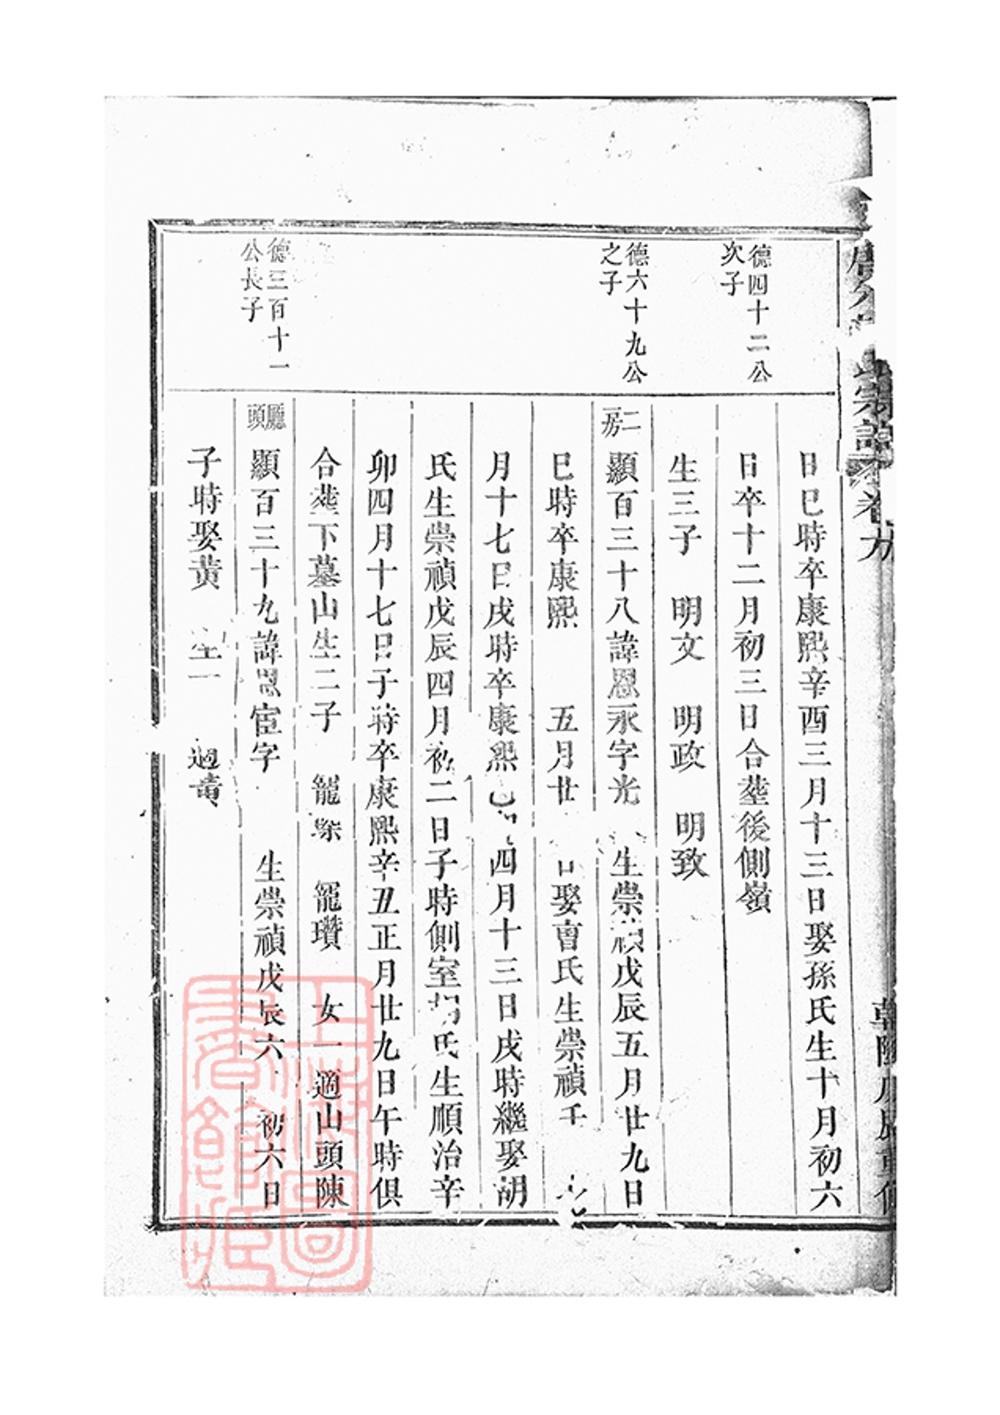 宗譜
卷九
德四十二公
次子
日巳時卒康熙辛酉三月十三日娶孫氏生十月初六
日卒十二月初三日合塟後側嶺
生三子 明文 明政 明致
德六十九公
之子
二房
顯百三十八諱恩永字光 生崇禎戊辰五月廿九日
巳時卒康熙 五月廿 日娶曹氏生崇禎壬
月十七日戌時卒康熙 四月十三日戌時繼娶胡
氏生崇禎戊辰四月初二日子時側室 氏生順治辛
卯四月十七日子時卒康熙辛丑正月廿九日午時俱
合塟下墓山生二子 寵 寵瓚 女一適山頭陳
德三百十一
公長子
廳頭
顯百三十九諱恩宦字 生崇禎戊辰六 初六日
子時娶黃 生一 適黃
上海圖書館藏